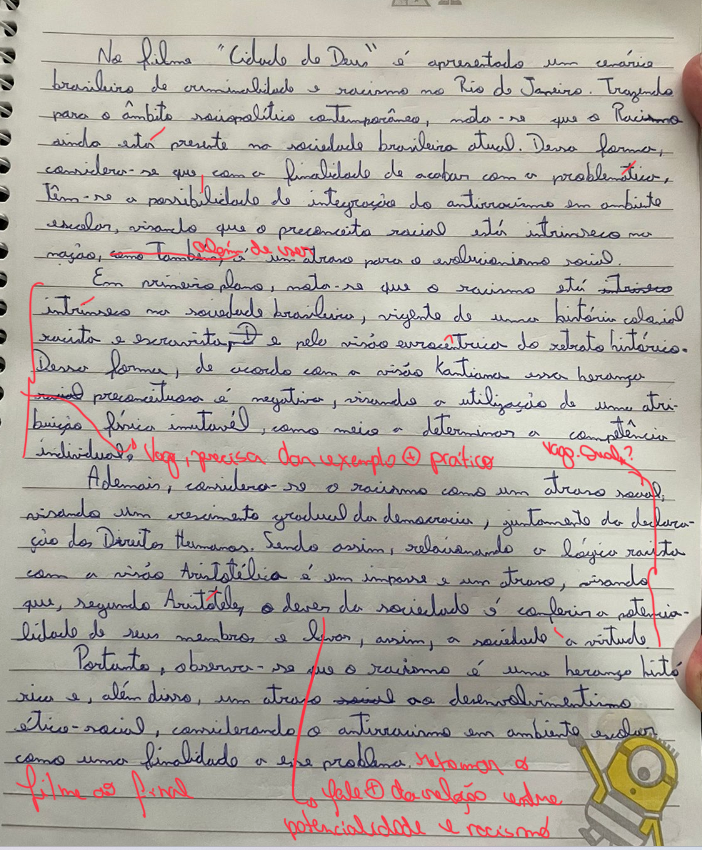 No filme "Cidade de Deus" é apresentado um cenário
brasileiro de criminalidade e racismo no Rio de Janeiro. Trazendo
para o âmbito sociopolítico contemporâneo, nota-se que o Racismo
ainda está presente na sociedade brasileira atual. Dessa forma,
considera-se que, com a finalidade de acabar com a problemática,
Têm-se a possibilidade de integração do antirracismo em ambiente
escolar, visando que o preconceito racial está intrínseco na
nação, como também, além de ser um atraso para o evolucionismo social.
Em primeiro plano, nota-se que o racismo está intrínseco
intrínseco na sociedade brasileira, vigente de uma história colonial
racista e escravista, D e pela visão eurocêntrica do retrato histórico.
Dessa forma, de acordo com a visão Kantiana essa herança
racial preconceituosa é negativa, visando a utilização de uma atri-
buição física imutavél, como meio a determinar a competência
individual. Vago, precisa dar exemplo + prático Vago. Qual?
Ademais, considera-se o racismo como um atraso social,
visando um crescimento gradual da democracia, juntamente da declara-
ção dos Direitos Humanos. Sendo assim, relacionando a lógica racista
com a visão Aristotélica é um impasse e um atraso, visando
que, segundo Aristóteles, o dever da sociedade é conferir a potencia-
lidade de seus membros e levar, assim, a sociedade a virtude.
Portanto, observa-se que o racismo é uma herança histó
rica e, além disso, um atraso social ao desenvolvimentismo
ético-social, considerando o antirracismo em ambiente escolar
como uma finalidade a esse problema. retomar o
filme ao final
fale + da relação entre
potencialidade e racismo